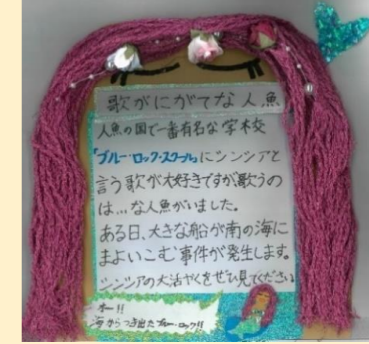 歌がにがてな人魚
人魚の国で一番有名な学校
「ブルー・ロック・スクール」にシンシアと
言う歌が大好きですが歌うの
は…な人魚がいました。
ある日、大きな船が南の海に
まよいこむ事件が発生します。
シンシアの大活やくをぜひ見てください
オー!!
海からつき出たブルー・ロック!!